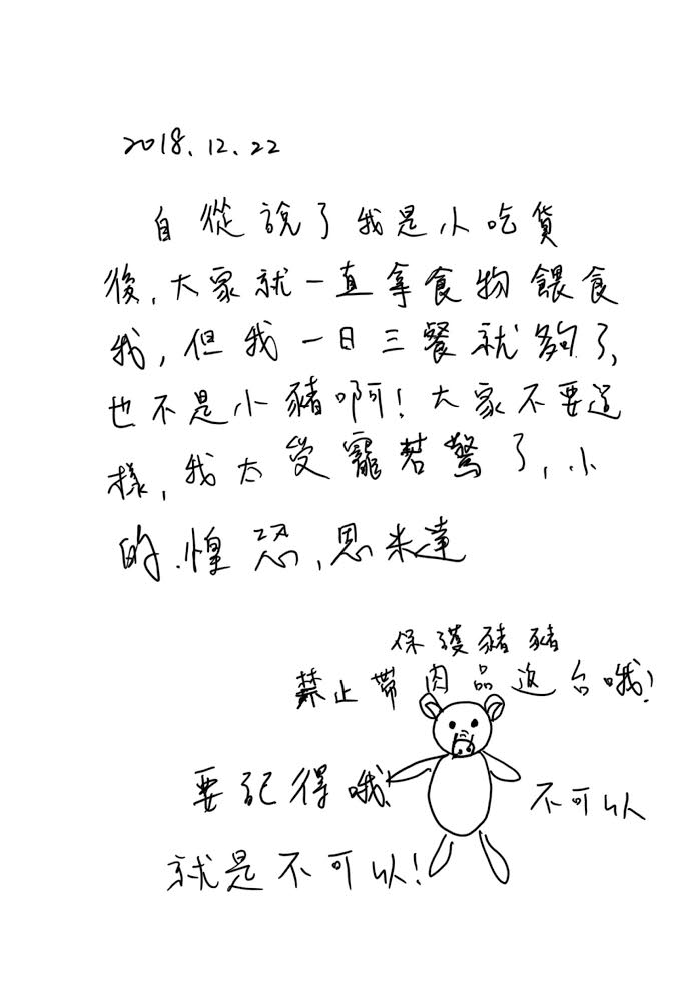 2018.12.22
自從說了我是小吃貨
後,大家就一直拿食物餵食
我,但我一日三餐就夠了,
也不是小豬啊!大家不要這
樣,我太受寵若驚了,小
的.惶恐,思米達
保護豬豬
禁止帶肉品返台哦!
要記得哦、
不可以
就是不可以!